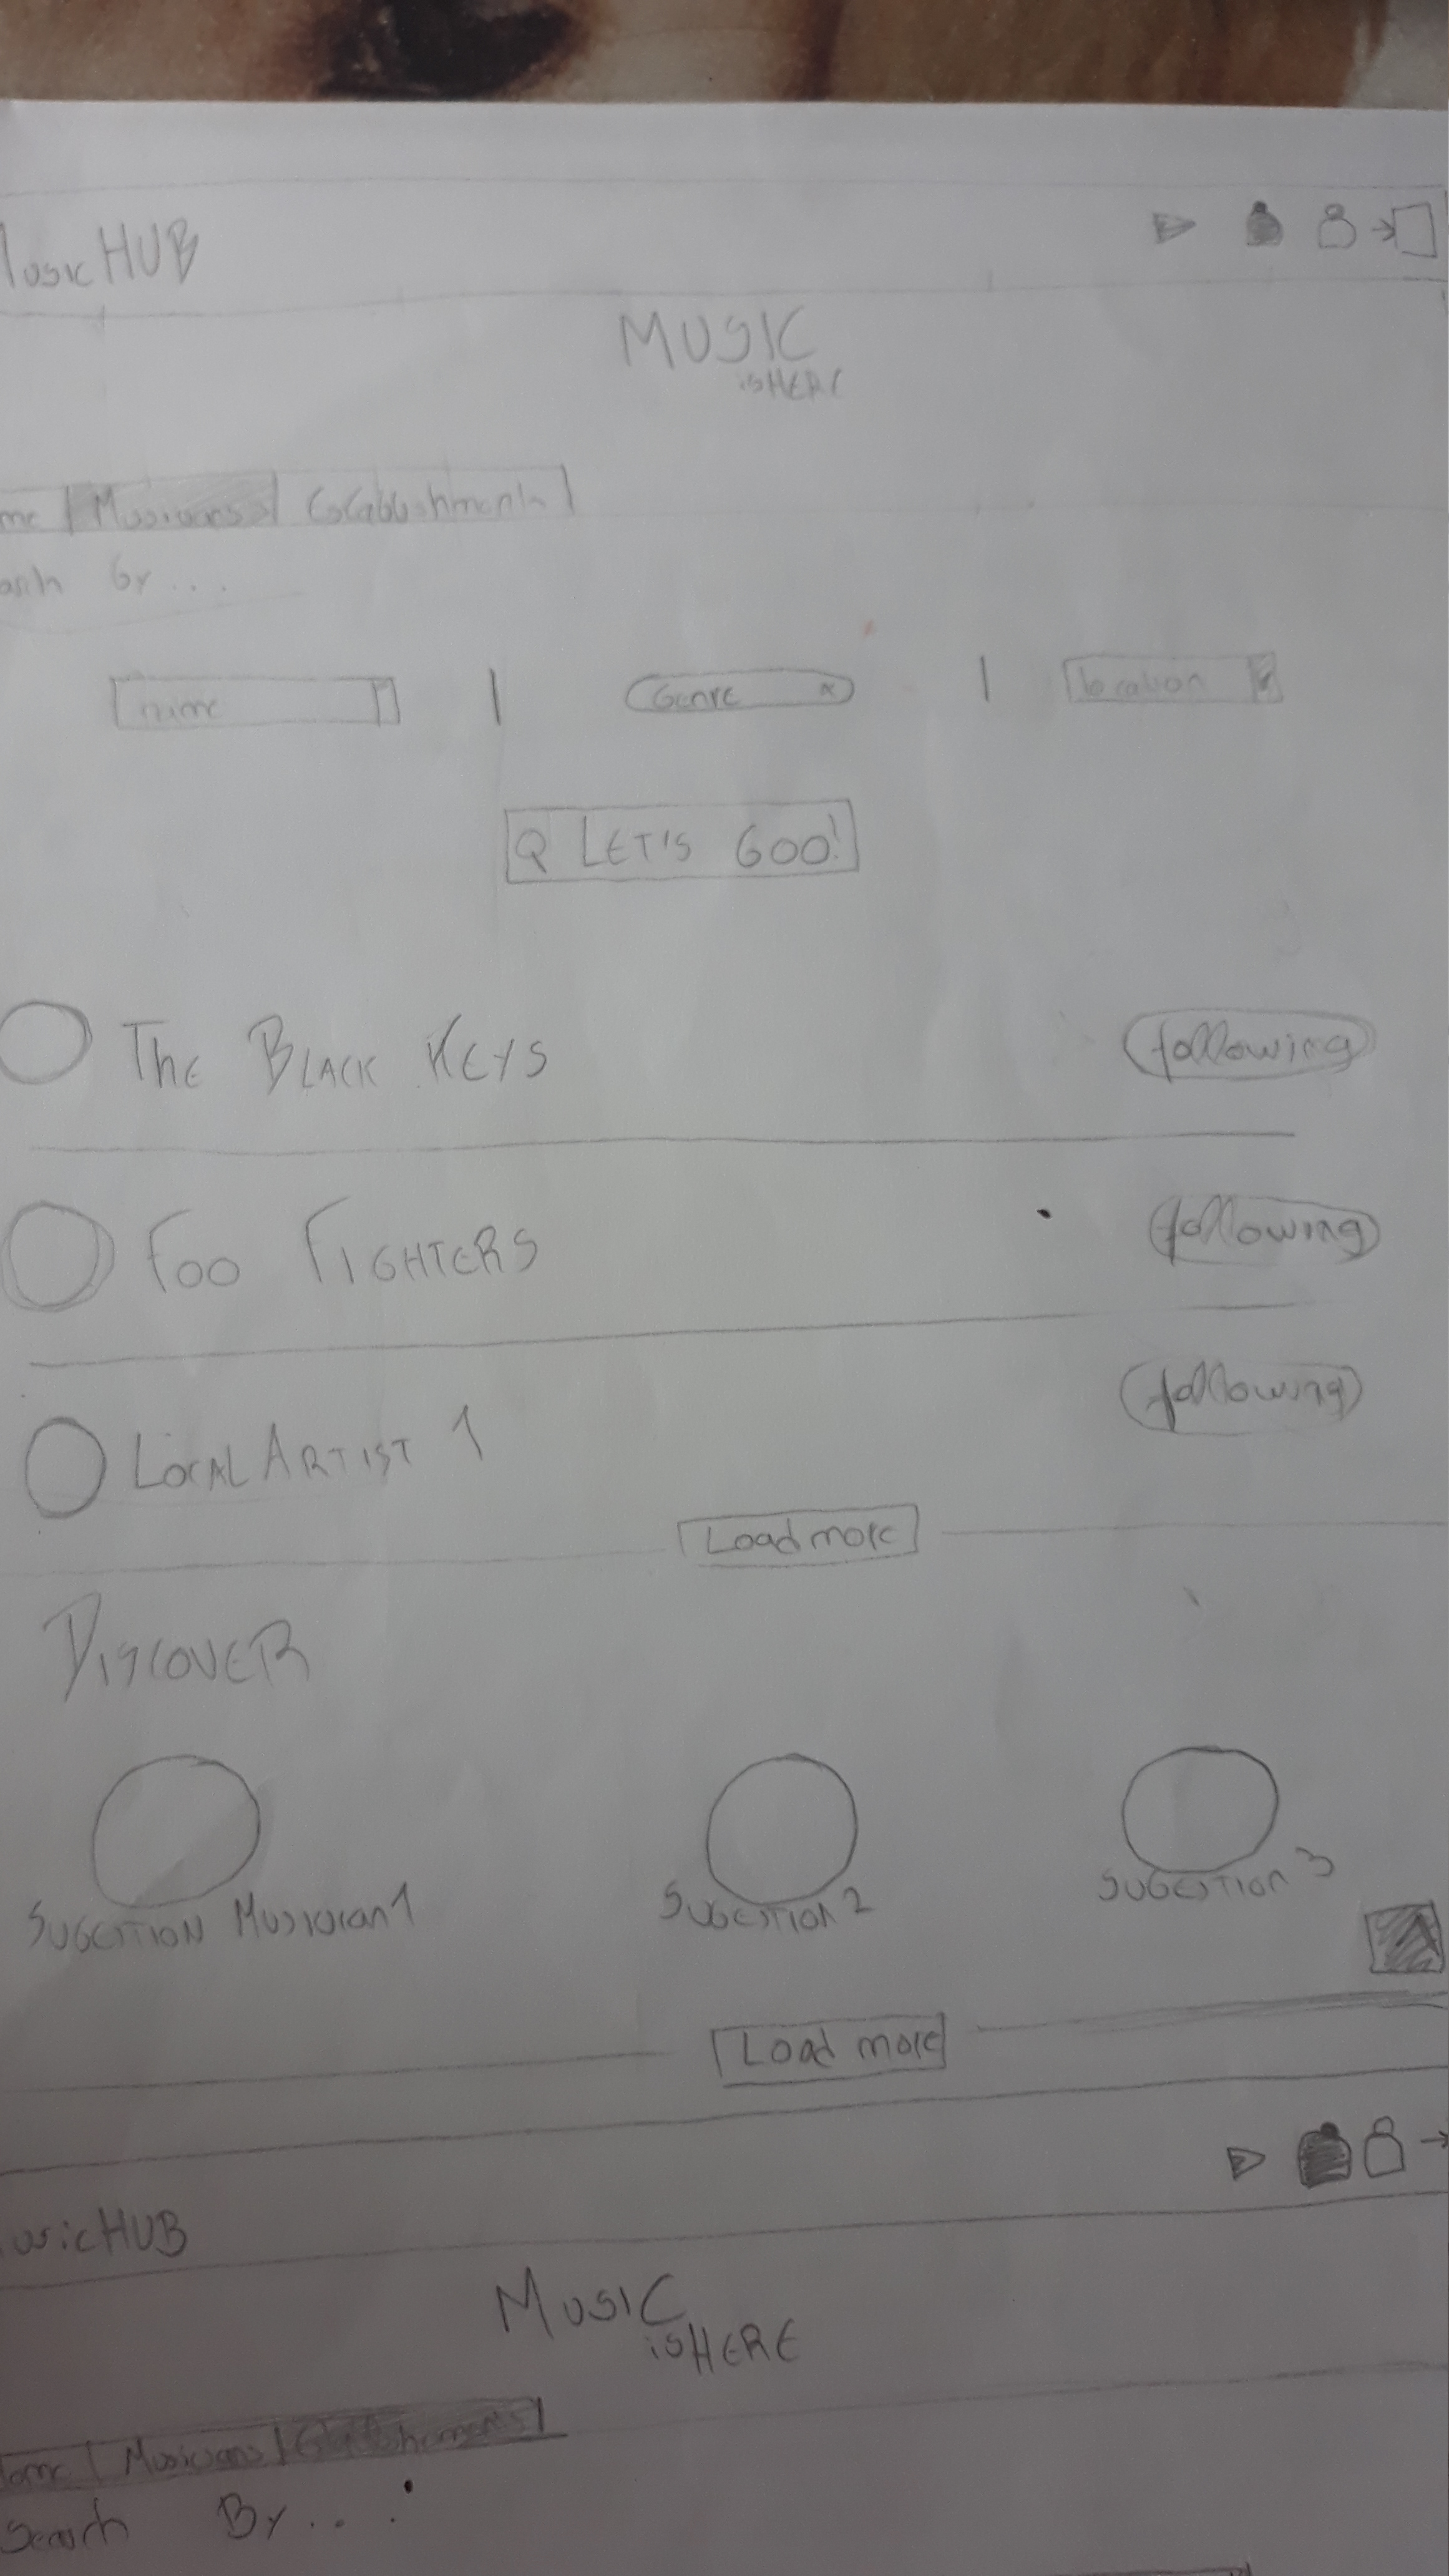 MusicHUB
MUSIC
isHERE
me | Musicians | Establishments
arch by...
name | Genre x | location
Q LET'S GOO!
THE BLACK KEYS following
FOO FIGHTERS following
LOCAL ARTIST 1 following
Load more
DISCOVER
SUGESTION MUSICIAN 1 SUGESTION 2 SUGESTION 3
Load more
usicHUB
MUSIC
isHERE
Home | Musicians | Establishments
Search By...